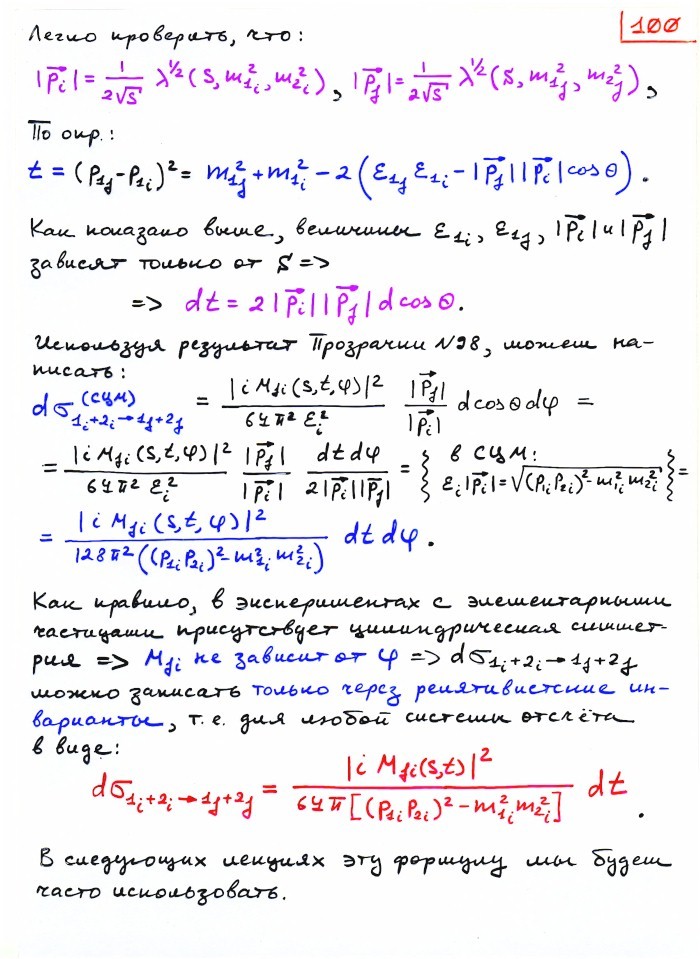 100
Легко проверить, что:
|p⃗_i| = 1/(2√s) λ^{1/2}(s, m²_{1i}, m²_{2i}), |p⃗_f| = 1/(2√s) λ^{1/2}(s, m²_{1f}, m²_{2f}),
По опр.:
t = (p_{1f} - p_{1i})² = m²_{1f} + m²_{1i} - 2(ε_{1f} ε_{1i} - |p⃗_f||p⃗_i| cos θ).
Как показано выше, величины ε_{1i}, ε_{1f}, |p⃗_i| и |p⃗_f|
зависят только от s =>
=> dt = 2|p⃗_i||p⃗_f| d cos θ.
Используя результат Прозрачки №98, можем на-
писать:
dσ^{(СЦМ)}_{1i+2i→1f+2f} = |i M_{fi}(s,t,φ)|²/(64π² ε_i²) |p⃗_f|/|p⃗_i| d cos θ dφ =
= |i M_{fi}(s,t,φ)|²/(64π² ε_i²) |p⃗_f|/|p⃗_i| dt dφ/(2|p⃗_i||p⃗_f|) = { в СЦМ: ε_i|p⃗_i| = √((p_{1i}p_{2i})² - m²_{1i}m²_{2i}) } =
= |i M_{fi}(s,t,φ)|²/(128π²((p_{1i}p_{2i})² - m²_{1i}m²_{2i})) dt dφ.
Как правило, в экспериментах с элементарными
частицами присутствует цилиндрическая симмет-
рия => M_{fi} не зависит от φ => dσ_{1i+2i→1f+2f}
можно записать только через релятивистские ин-
варианты, т.е. для любой системы отсчёта
в виде:
dσ_{1i+2i→1f+2f} = |i M_{fi}(s,t)|²/(64π[(p_{1i}p_{2i})² - m²_{1i}m²_{2i}]) dt.
В следующих лекциях эту формулу мы будем
часто использовать.